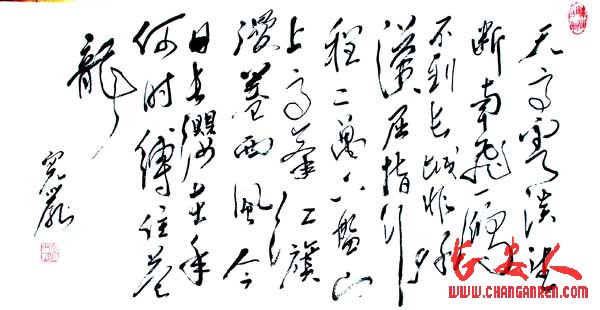 天高雲淡望
断南飛雁
不到长城非好
漢屈指行
程二萬六盤山
上高峯红旗
漫卷西風今
日长纓在手
何时缚住苍
龍
长安人
WWW.CHANGANREN.COM